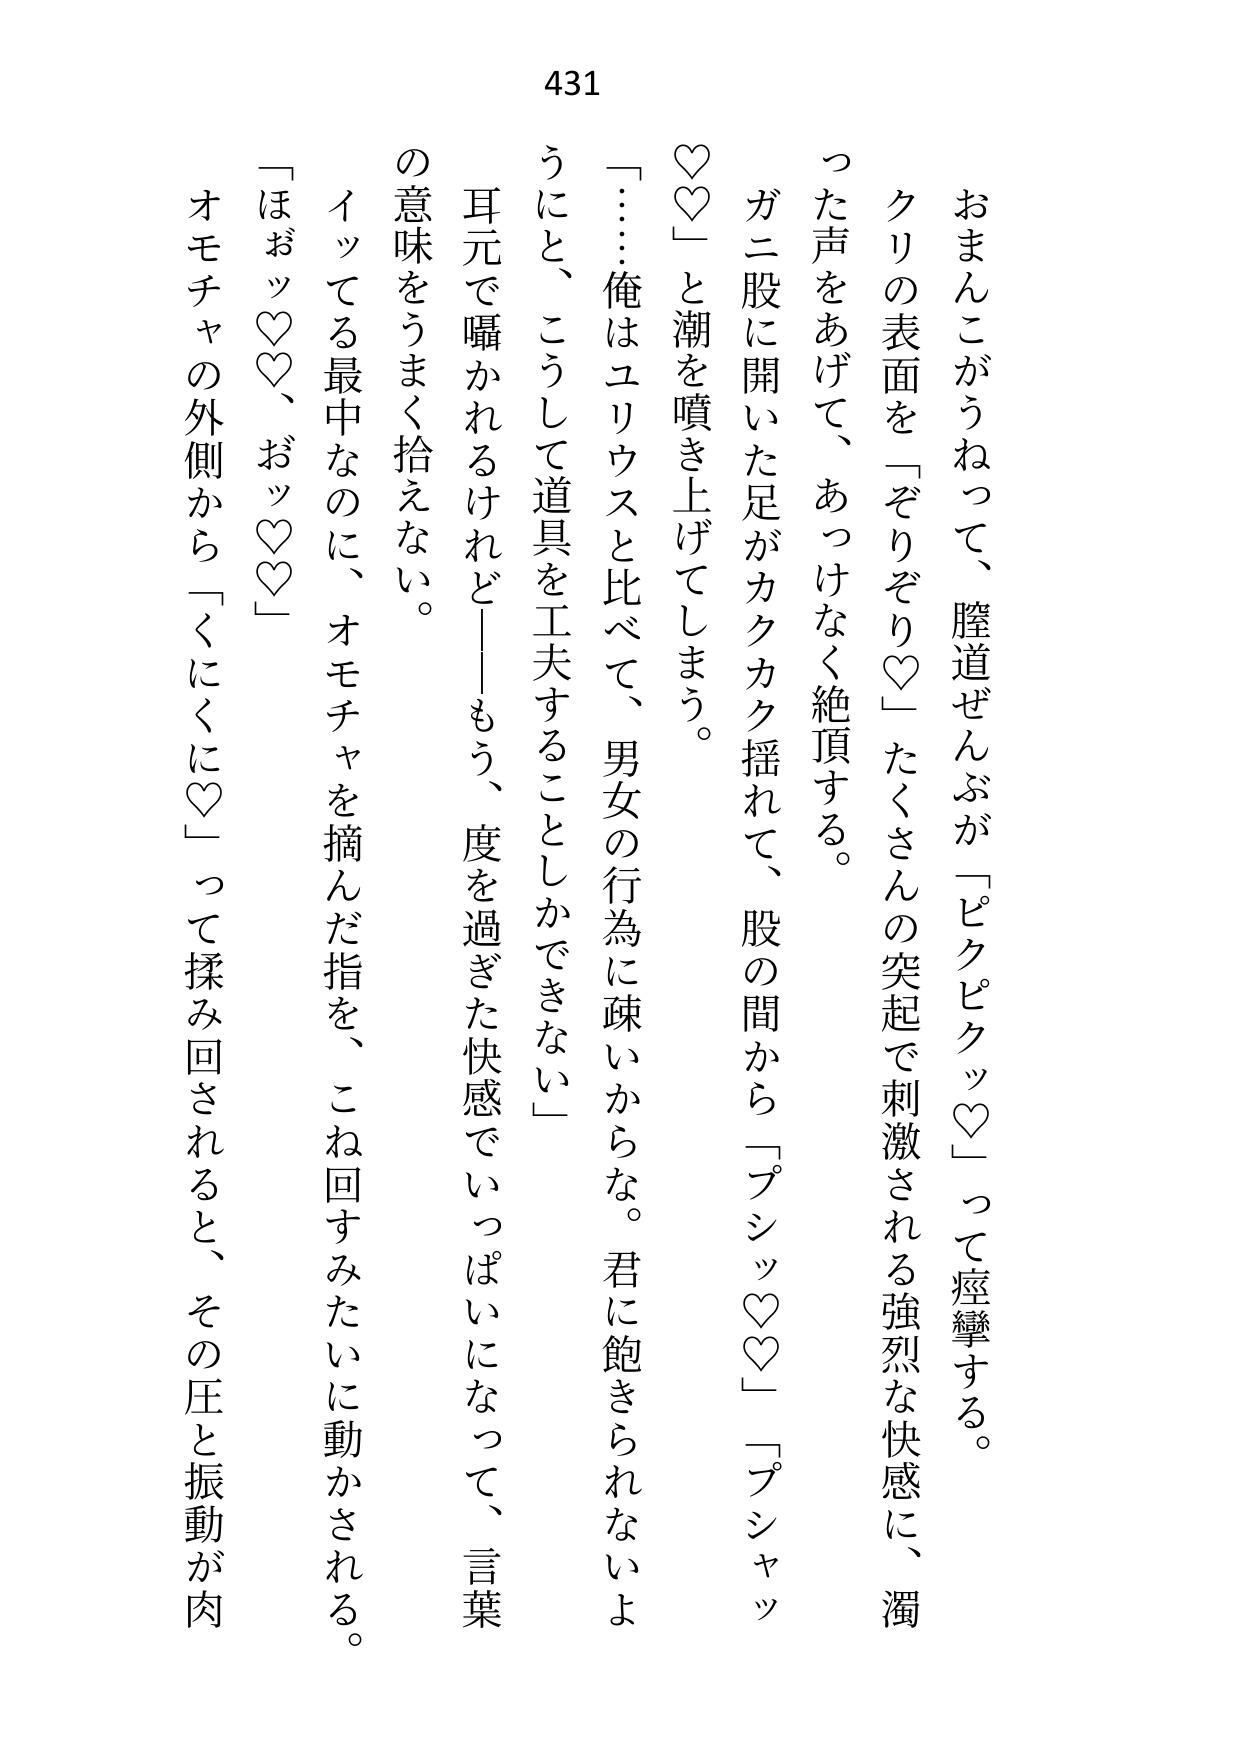 431
　おまんこがうねって、膣道ぜんぶが「ピクピクッ♡」って痙攣する。
　クリの表面を「ぞりぞり♡」たくさんの突起で刺激される強烈な快感に、濁
った声をあげて、あっけなく絶頂する。
　ガニ股に開いた足がカクカク揺れて、股の間から「プシッ♡♡」「プシャッ
♡♡」と潮を噴き上げてしまう。
「……俺はユリウスと比べて、男女の行為に疎いからな。君に飽きられないよ
うにと、こうして道具を工夫することしかできない」
　耳元で囁かれるけれど――もう、度を過ぎた快感でいっぱいになって、言葉
の意味をうまく拾えない。
　イッてる最中なのに、オモチャを摘んだ指を、こね回すみたいに動かされる。
「ほぉ゙ッ♡♡、お゙ッ♡♡」
　オモチャの外側から「くにくに♡」って揉み回されると、その圧と振動が肉